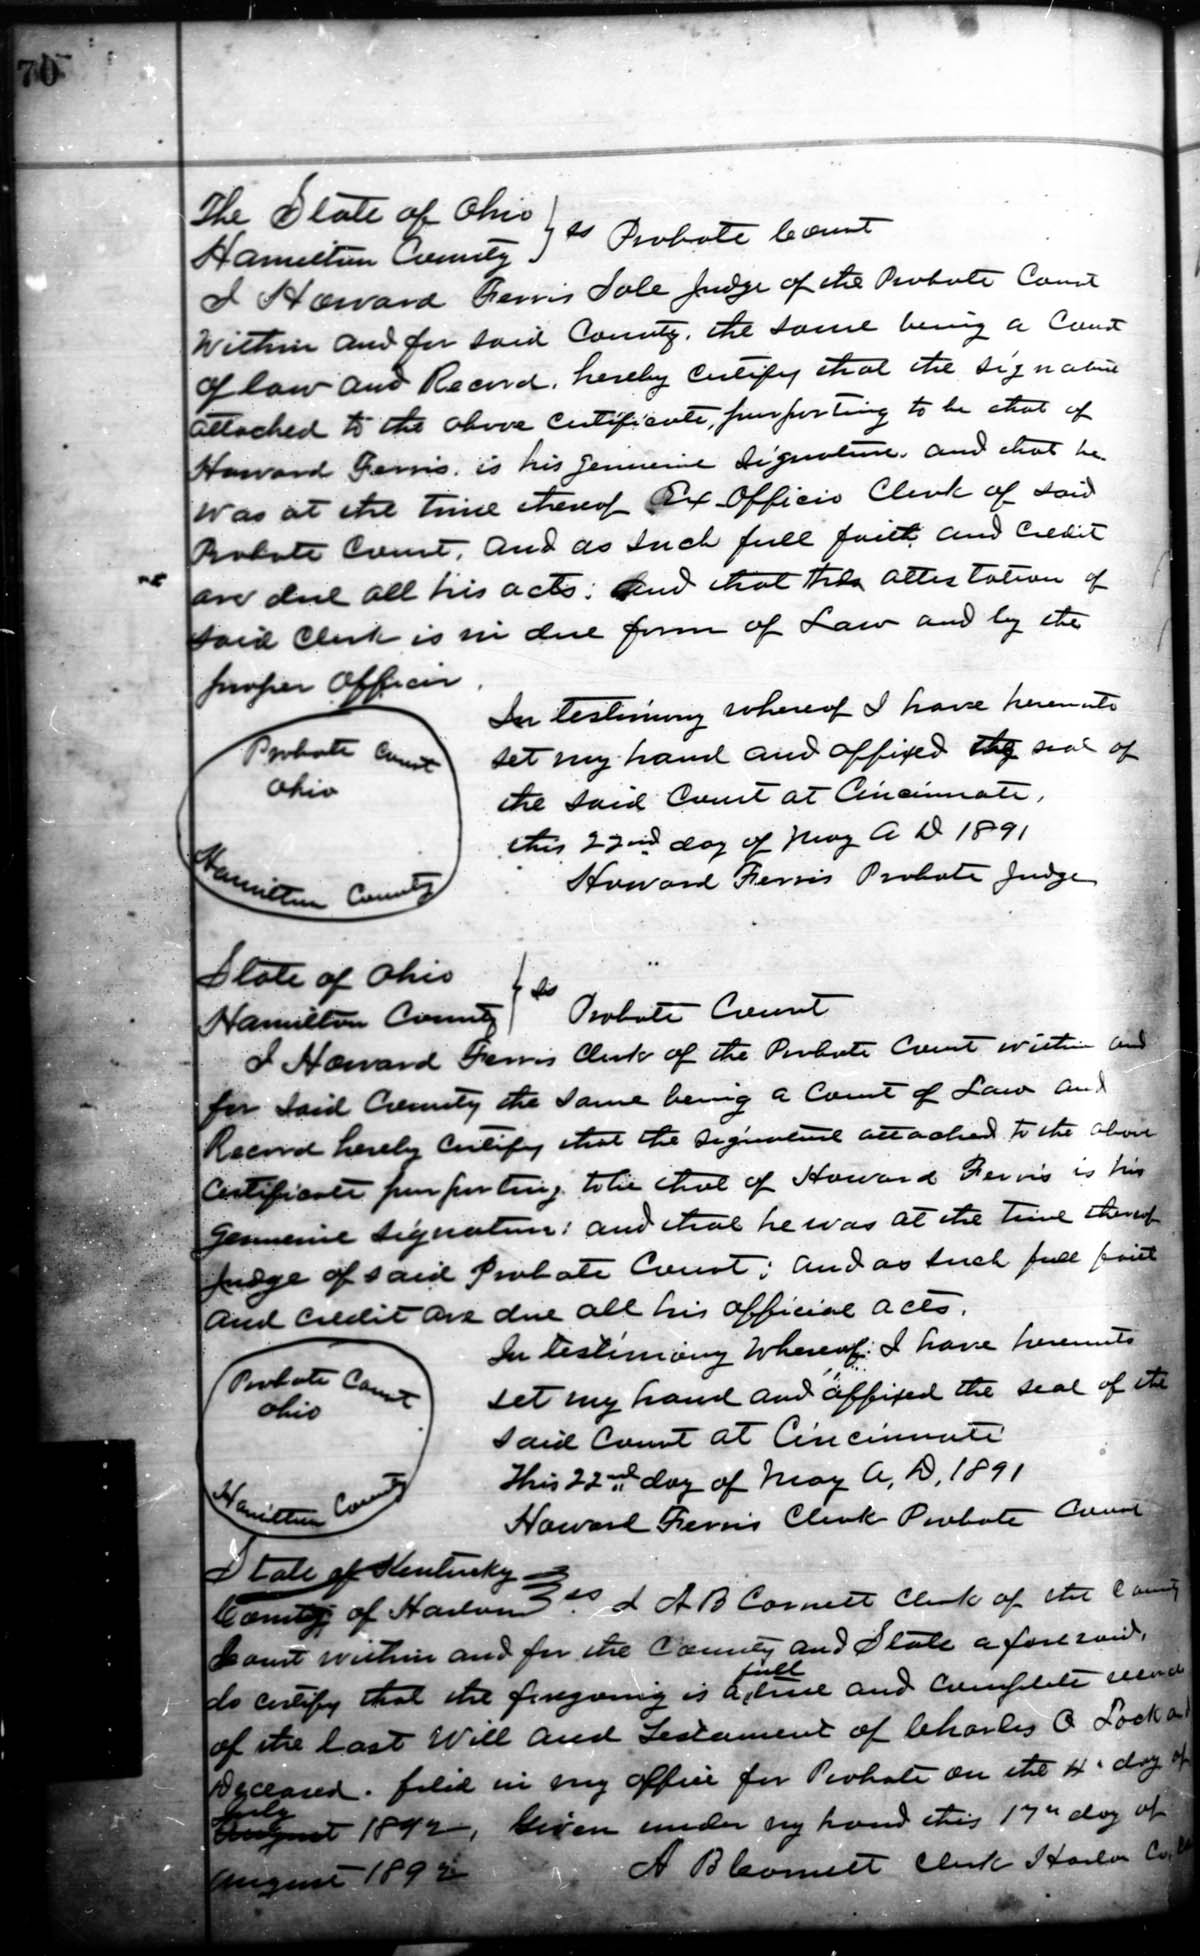 70
The State of Ohio } ss Probate Court
Hamilton County
I Howard Ferris Sole Judge of the Probate Court
Within and for said County, the same being a Court
of law and Record, hereby certify that the signature
attached to the above certificate, purporting to be that of
Howard Ferris, is his genuine signature, and that he
was at the time thereof Ex-Officio Clerk of said
Probate Court, and as such full faith and credit
are due all his acts; and that this attestation of
said Clerk is in due form of Law and by the
proper Officer.
In testimony whereof I have hereunto
set my hand and affixed the seal of
the said Court at Cincinnati,
this 22nd day of May A D 1891
Howard Ferris Probate Judge
Probate Court
Ohio
Hamilton County
State of Ohio } ss
Hamilton County Probate Court
I Howard Ferris Clerk of the Probate Court within and
for said County the same being a Court of Law and
Record hereby certify that the signature attached to the above
certificate purporting to be that of Howard Ferris is his
genuine signature; and that he was at the time thereof
Judge of said Probate Court; and as such full faith
and credit are due all his official acts.
In testimony Whereof: I have hereunto
set my hand and affixed the seal of the
said Court at Cincinnati
This 22nd day of May A, D, 1891
Howard Ferris Clerk Probate Court
Probate Court
Ohio
Hamilton County
State of Kentucky
County of Harlan } ss. I A B Cornett Clerk of the County
Court within and for the County and State aforesaid,
do certify that the foregoing is a full true and complete record
of the last Will and Testament of Charles O Lockard
Deceased. filed in my office for Probate on the 4" day of
July
August 1892, Given under my hand this 17" day of
August 1892 A B Cornett Clerk Harlan Co.